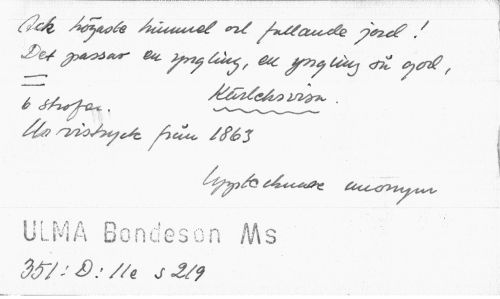 Ack högaste himmel och fallande jord!
Det passar en yngling, en yngling så god,
=
6 strofer. Kärleksvisa.
Ur vistryck från 1863
Upptecknare anonym
ULMA Bondeson Ms
351:D:11e s 219